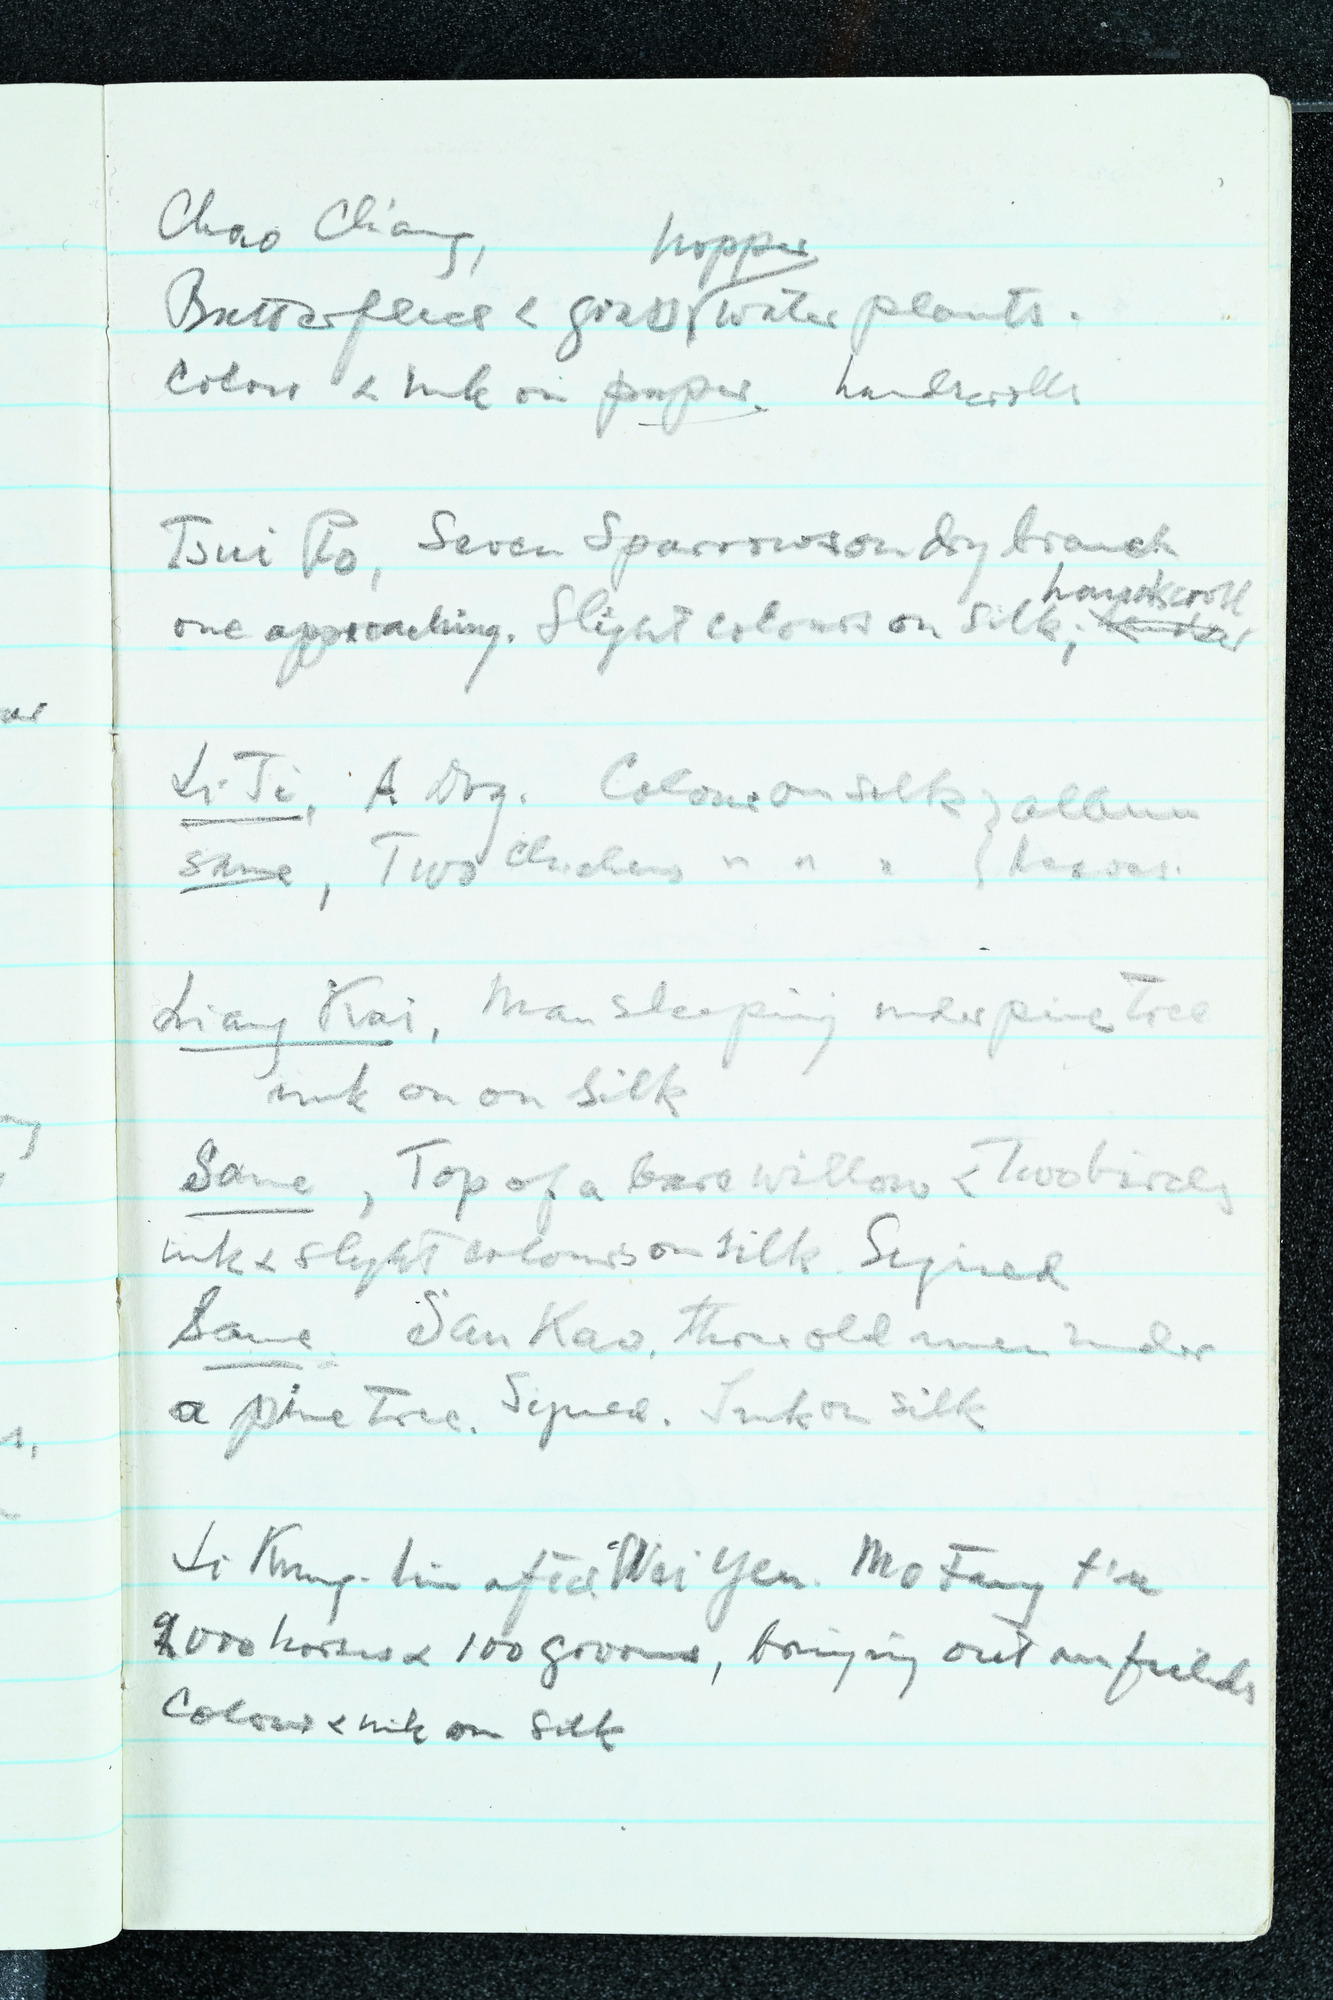 Chao Ch'ang,
hopper
Butterflies & grass water plants.
Colour & ink on paper. handscrolls
Tsui Po, Seven Sparrows on dry branch
handscroll
one approaching. Slight colours on silk;
Li Ti, A Dog. Colour on silk } album
same, Two Chickens " " " { leaves.
Liang Kai, Man sleeping under pine tree
ink on on silk
Same, Top of a bare willow & Two birds
ink & slight colours on silk. Signed
Same. San Kao, three old men under
a pine tree. Signed. Ink on silk
Li Kung-lin after Wei Yen. Mo Fang t'u
1000 horses & 100 grooms, bringing out on fields
Colour & ink on silk